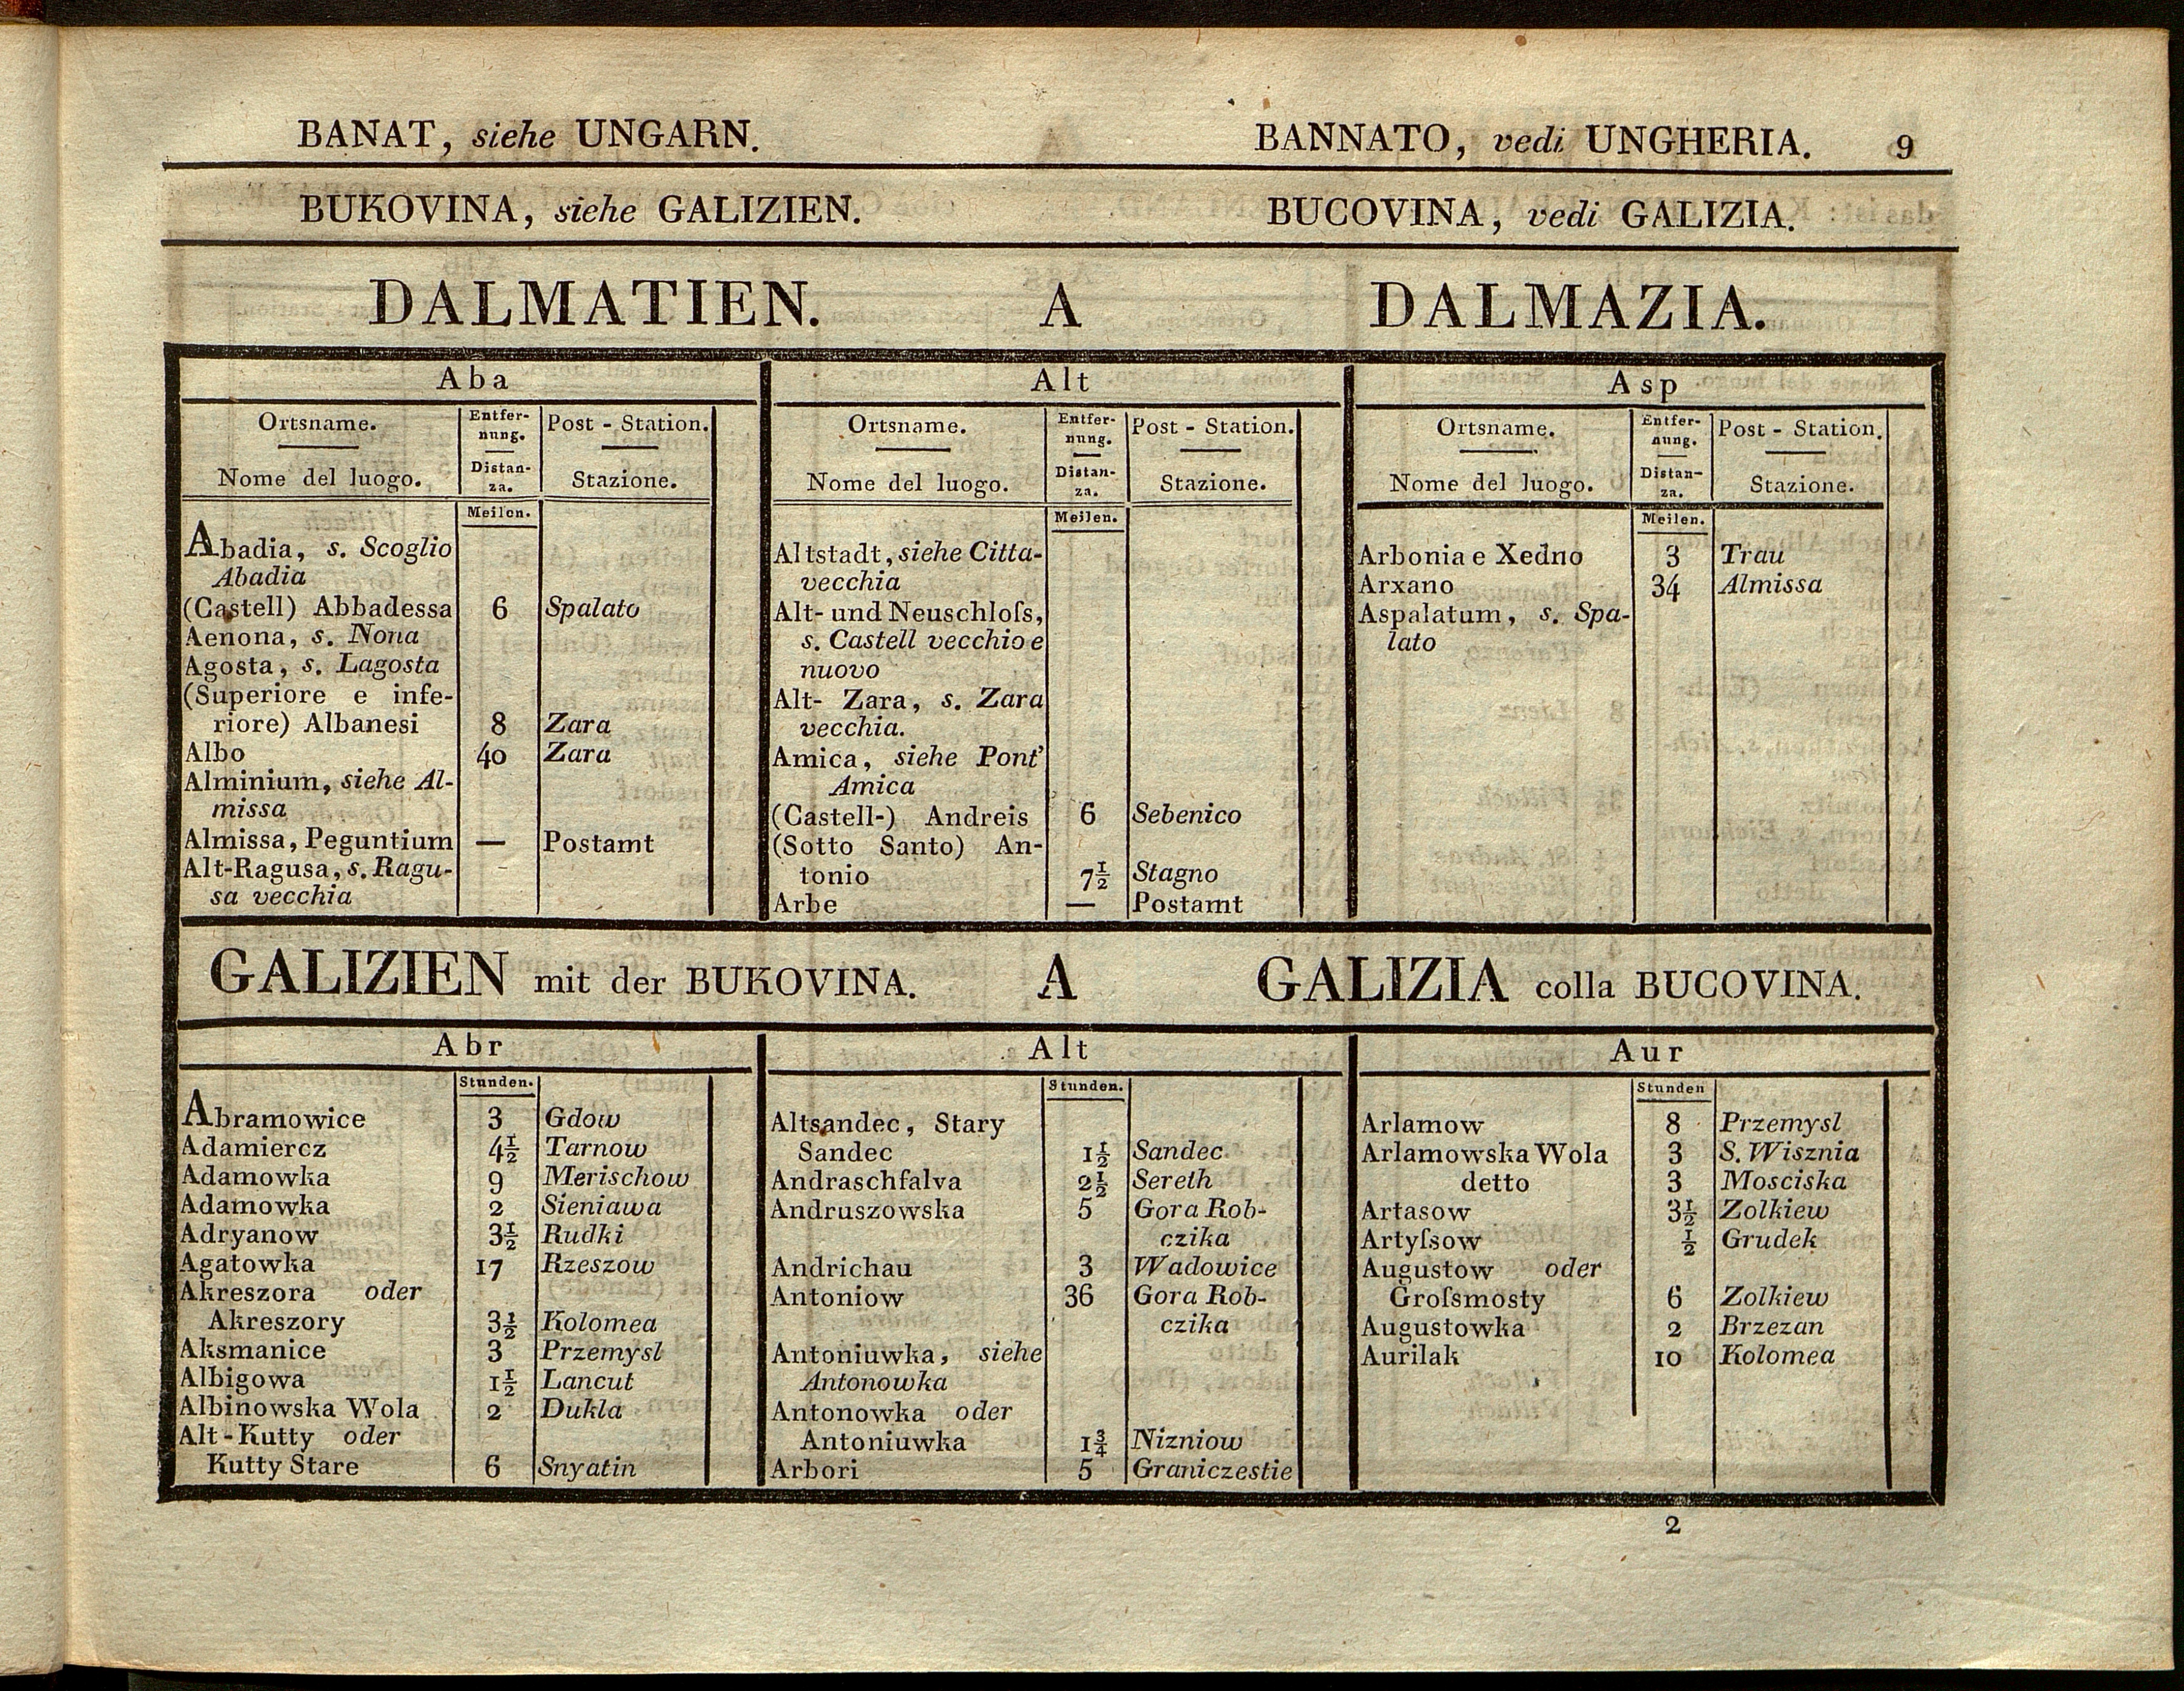 BANAT, siehe UNGARN. BANNATO, vedi UNGHERIA. 9
BUKOVINA, siehe GALIZIEN. BUCOVINA, vedi GALIZIA.
DALMATIEN. A DALMAZIA.
Aba
Ortsname. Entfer- Post - Station.
nung.
Nome del luogo. Distan- Stazione.
za.
Meilen.
Abadia, s. Scoglio
Abadia
(Castell) Abbadessa 6 Spalato
Aenona, s. Nona
Agosta, s. Lagosta
(Superiore e infe-
riore) Albanesi 8 Zara
Albo 40 Zara
Alminium, siehe Al-
missa
Almissa, Peguntium — Postamt
Alt-Ragusa, s. Ragu-
sa vecchia
Alt
Ortsname. Entfer- Post - Station.
nung.
Nome del luogo. Distan- Stazione.
za.
Meilen.
Altstadt, siehe Citta-
vecchia
Alt- und Neuschloſs,
s. Castell vecchio e
nuovo
Alt- Zara, s. Zara
vecchia.
Amica, siehe Pont'
Amica
(Castell-) Andreis 6 Sebenico
(Sotto Santo) An-
tonio 7½ Stagno
Arbe — Postamt
Asp
Ortsname. Entfer- Post - Station.
nung.
Nome del luogo. Distan- Stazione.
za.
Meilen.
Arbonia e Xedno 3 Trau
Arxano 34 Almissa
Aspalatum, s. Spa-
lato
GALIZIEN mit der BUKOVINA. A GALIZIA colla BUCOVINA.
Abr
Stunden.
Abramowice 3 Gdow
Adamiercz 4½ Tarnow
Adamowka 9 Merischow
Adamowka 2 Sieniawa
Adryanow 3½ Rudki
Agatowka 17 Rzeszow
Akreszora oder
Akreszory 3½ Kolomea
Aksmanice 3 Przemysl
Albigowa 1½ Lancut
Albinowska Wola 2 Dukla
Alt-Kutty oder
Kutty Stare 6 Snyatin
Alt
Stunden.
Altsandec, Stary
Sandec 1½ Sandec
Andraschfalva 2½ Sereth
Andruszowska 5 Gora Rob-
czika
Andrichau 3 Wadowice
Antoniow 36 Gora Rob-
czika
Antoniuwka, siehe
Antonowka
Antonowka oder
Antoniuwka 1¾ Nizniow
Arbori 5 Graniczestie
Aur
Stunden
Arlamow 8 Przemysl
Arlamowska Wola 3 S. Wisznia
detto 3 Mosciska
Artasow 3½ Zolkiew
Artyſsow ½ Grudek
Augustow oder
Groſsmosty 6 Zolkiew
Augustowka 2 Brzezan
Aurilak 10 Kolomea
2